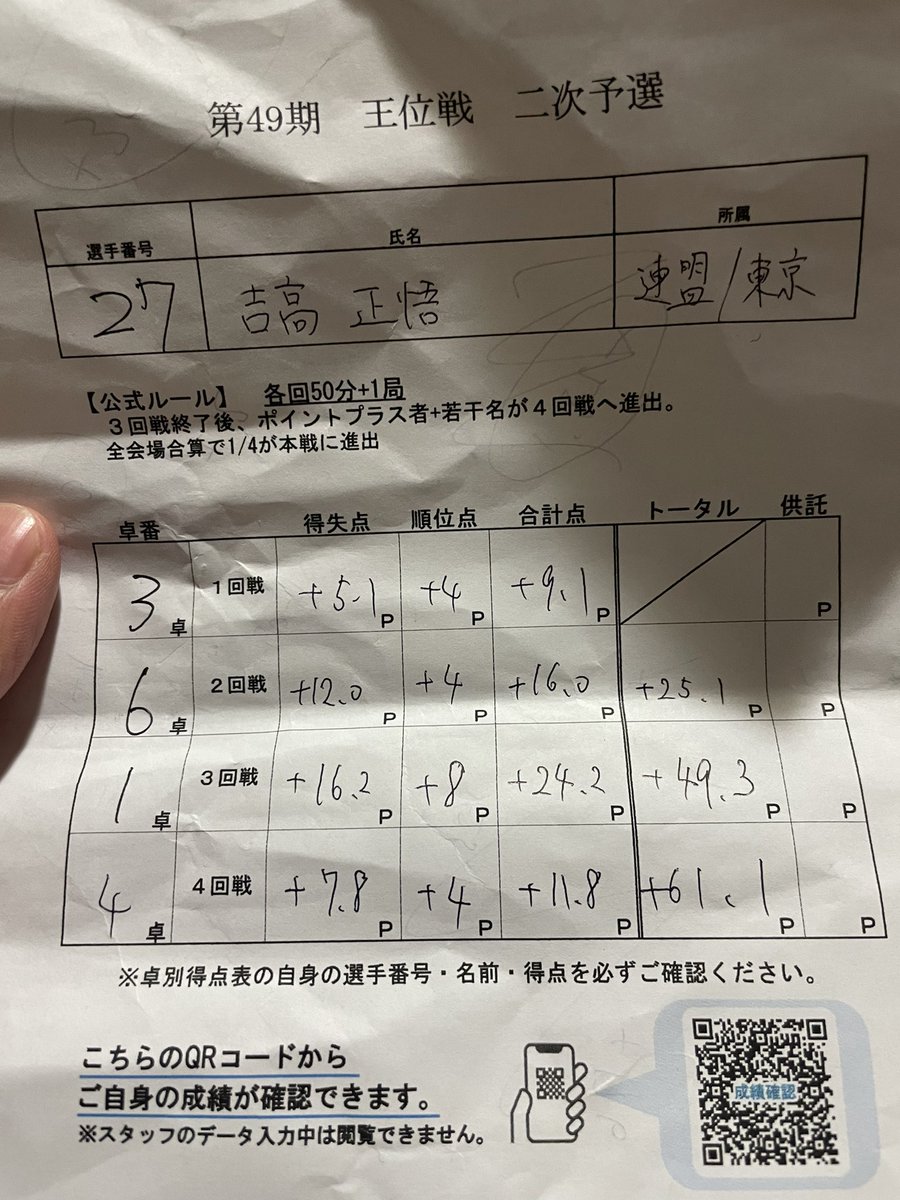 第49期　王位戦　二次予選
選手番号　氏名　所属
27　吉高 正悟　連盟/東京
【公式ルール】　各回50分+1局
３回戦終了後、ポイントプラス者+若干名が４回戦へ進出。
全会場合算で1/4が本戦に進出
卓番　得失点　順位点　合計点　トータル　供託
3卓　1回戦　+5.1P　+4P　+9.1P　P
6卓　2回戦　+12.0P　+4P　+16.0P　+25.1P　P
1卓　3回戦　+16.2P　+8P　+24.2P　+49.3P　P
4卓　4回戦　+7.8P　+4P　+11.8P　+61.1P　P
※卓別得点表の自身の選手番号・名前・得点を必ずご確認ください。
こちらのQRコードから
ご自身の成績が確認できます。
※スタッフのデータ入力中は閲覧できません。
成績確認